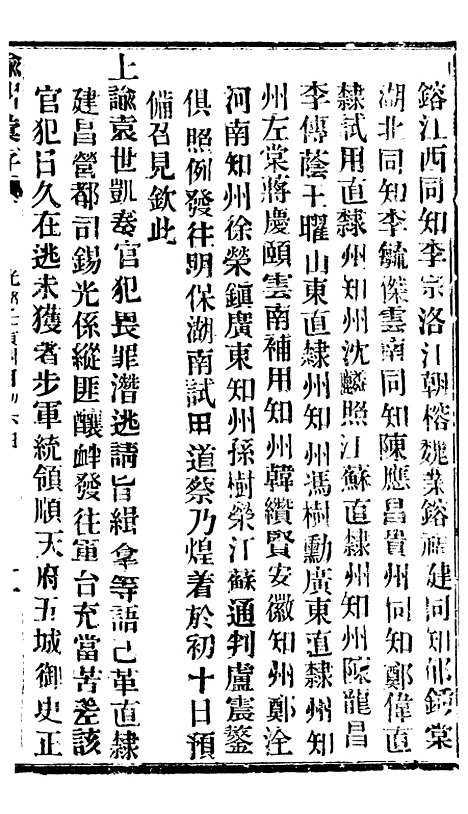 鎔江西同知李宗洛江朝榕魏業鎔福建同知郁錦棠
湖北同知李毓傑雲南同知陳應昌貴州同知鄭偉直
隸試用直隸州知州沈麟照江蘇直隸州知州陳龍昌
李傳蔭王曜山東直隸州知州馮樹勳廣東直隸州知
州左棠蔣慶頤雲南補用知州韓纘賢安徽知州鄭淦
河南知州徐榮鎮廣東知州孫樹榮江蘇通判盧震鋆
俱照例發往明保湖南試用道蔡乃煌着於初十日預
備召見欽此
上諭袁世凱奏官犯畏罪潛逃請旨緝拿等語已革直隸
建昌營都司錫光係縱匪釀衅發往軍台充當苦差該
官犯日久在逃未獲著步軍統領順天府五城御史正
諭
光緒
月初六日